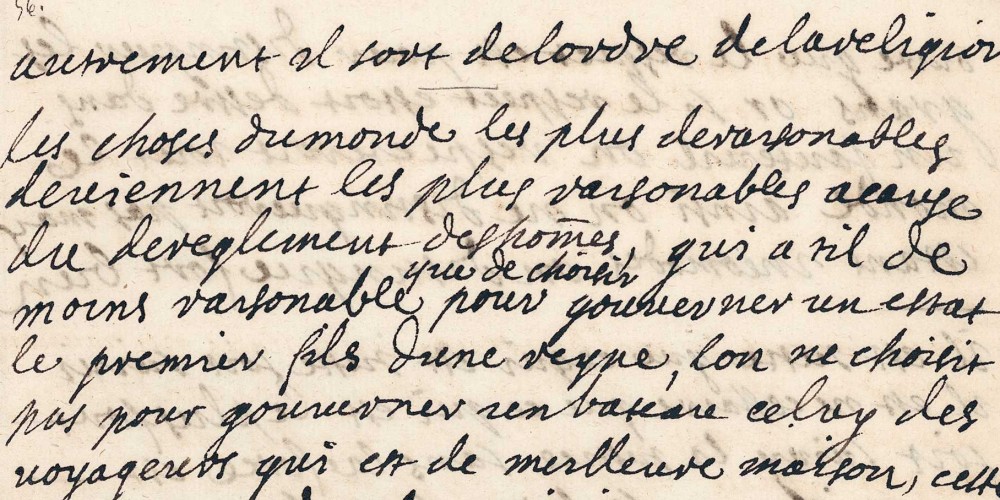 56.
autrement il sort delordre delareligion
les choses dumonde les plus deraisonables
deviennent les plus raisonables acause
du dereglement deshom̄es, qui a til de
que de choisir
moins raisonable pour gouverner un estat
le premier fils dune reyne, lon ne choisit
pas pour gouverner un bateau celuy des
voyageurs qui est de meilleure maison, cette